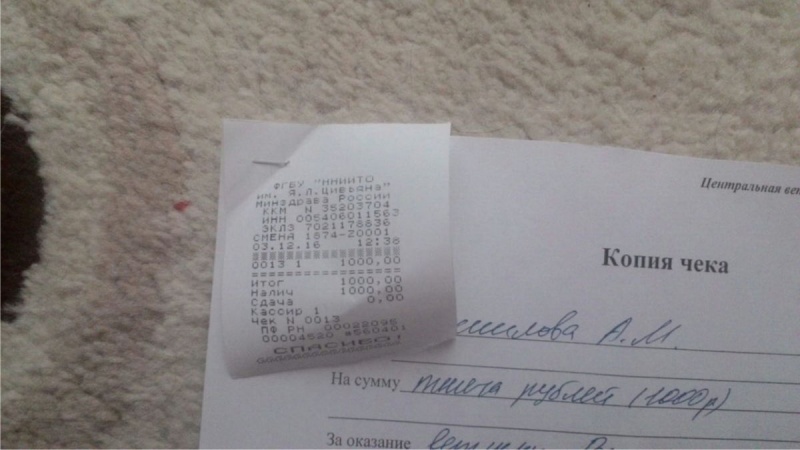 ФГБУ "ННИИТО
им. Я.Л.Цивьяна"
Минздрава России
ККМ N 35203704
ИНН 005406011563
ЭКЛЗ 7021178836
СМЕНА 1874-Z0001
03.12.16 12:38
0013 1 1000,00
Итог 1000,00
Налич 1000,00
Сдача 0,00
Кассир 1
Чек N 0013
ПФ РН 00028095
00004520 #560401
СПАСИБО!
Центральная
Копия чека
милова А.М.
На сумму тысяча рублей (1000р)
За оказание